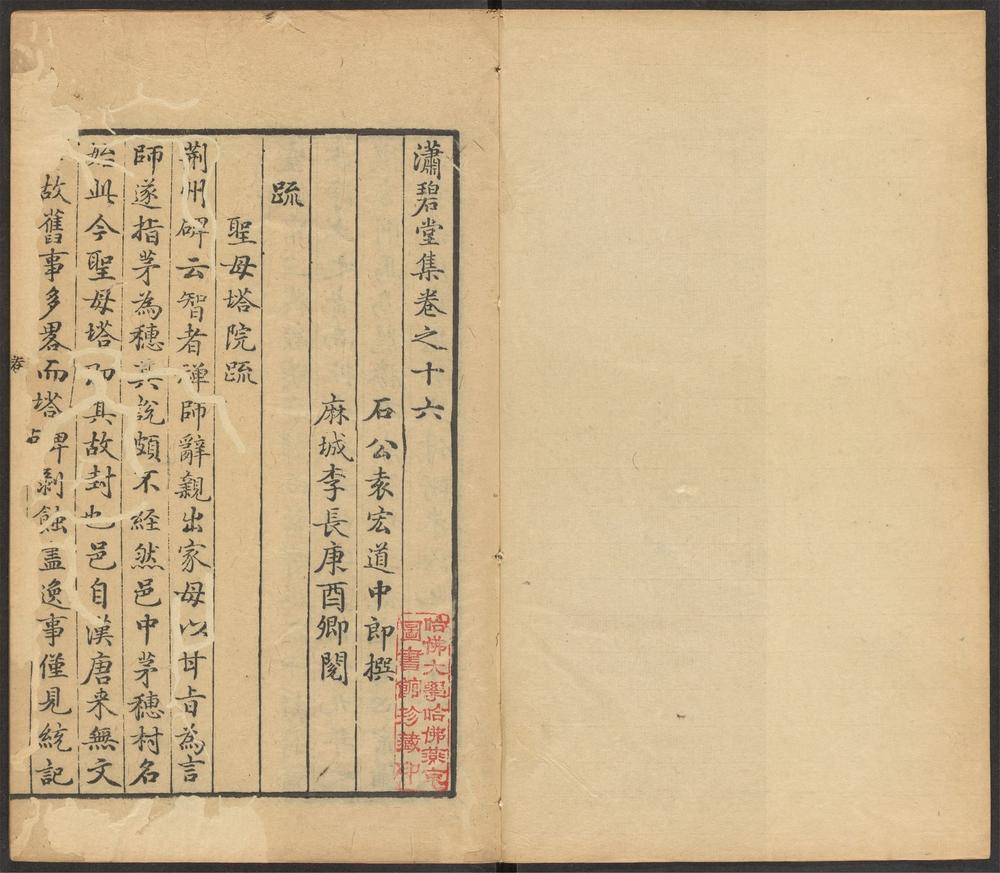 瀟碧堂集卷之十六
石公袁宏道中郎撰
麻城李長庚酉卿閱
䟽
聖母塔院䟽
荆州碑云智者禅師辭親出家母以甘旨為言
師遂指茅為穗其說頗不経然邑中茅穗村名
始此今聖母塔即其故封也邑自漢唐来無文
故舊事多畧而塔碑剥蝕盖逸事僅見統記
卷
哈佛大學哈佛燕京
圖書館珍藏印